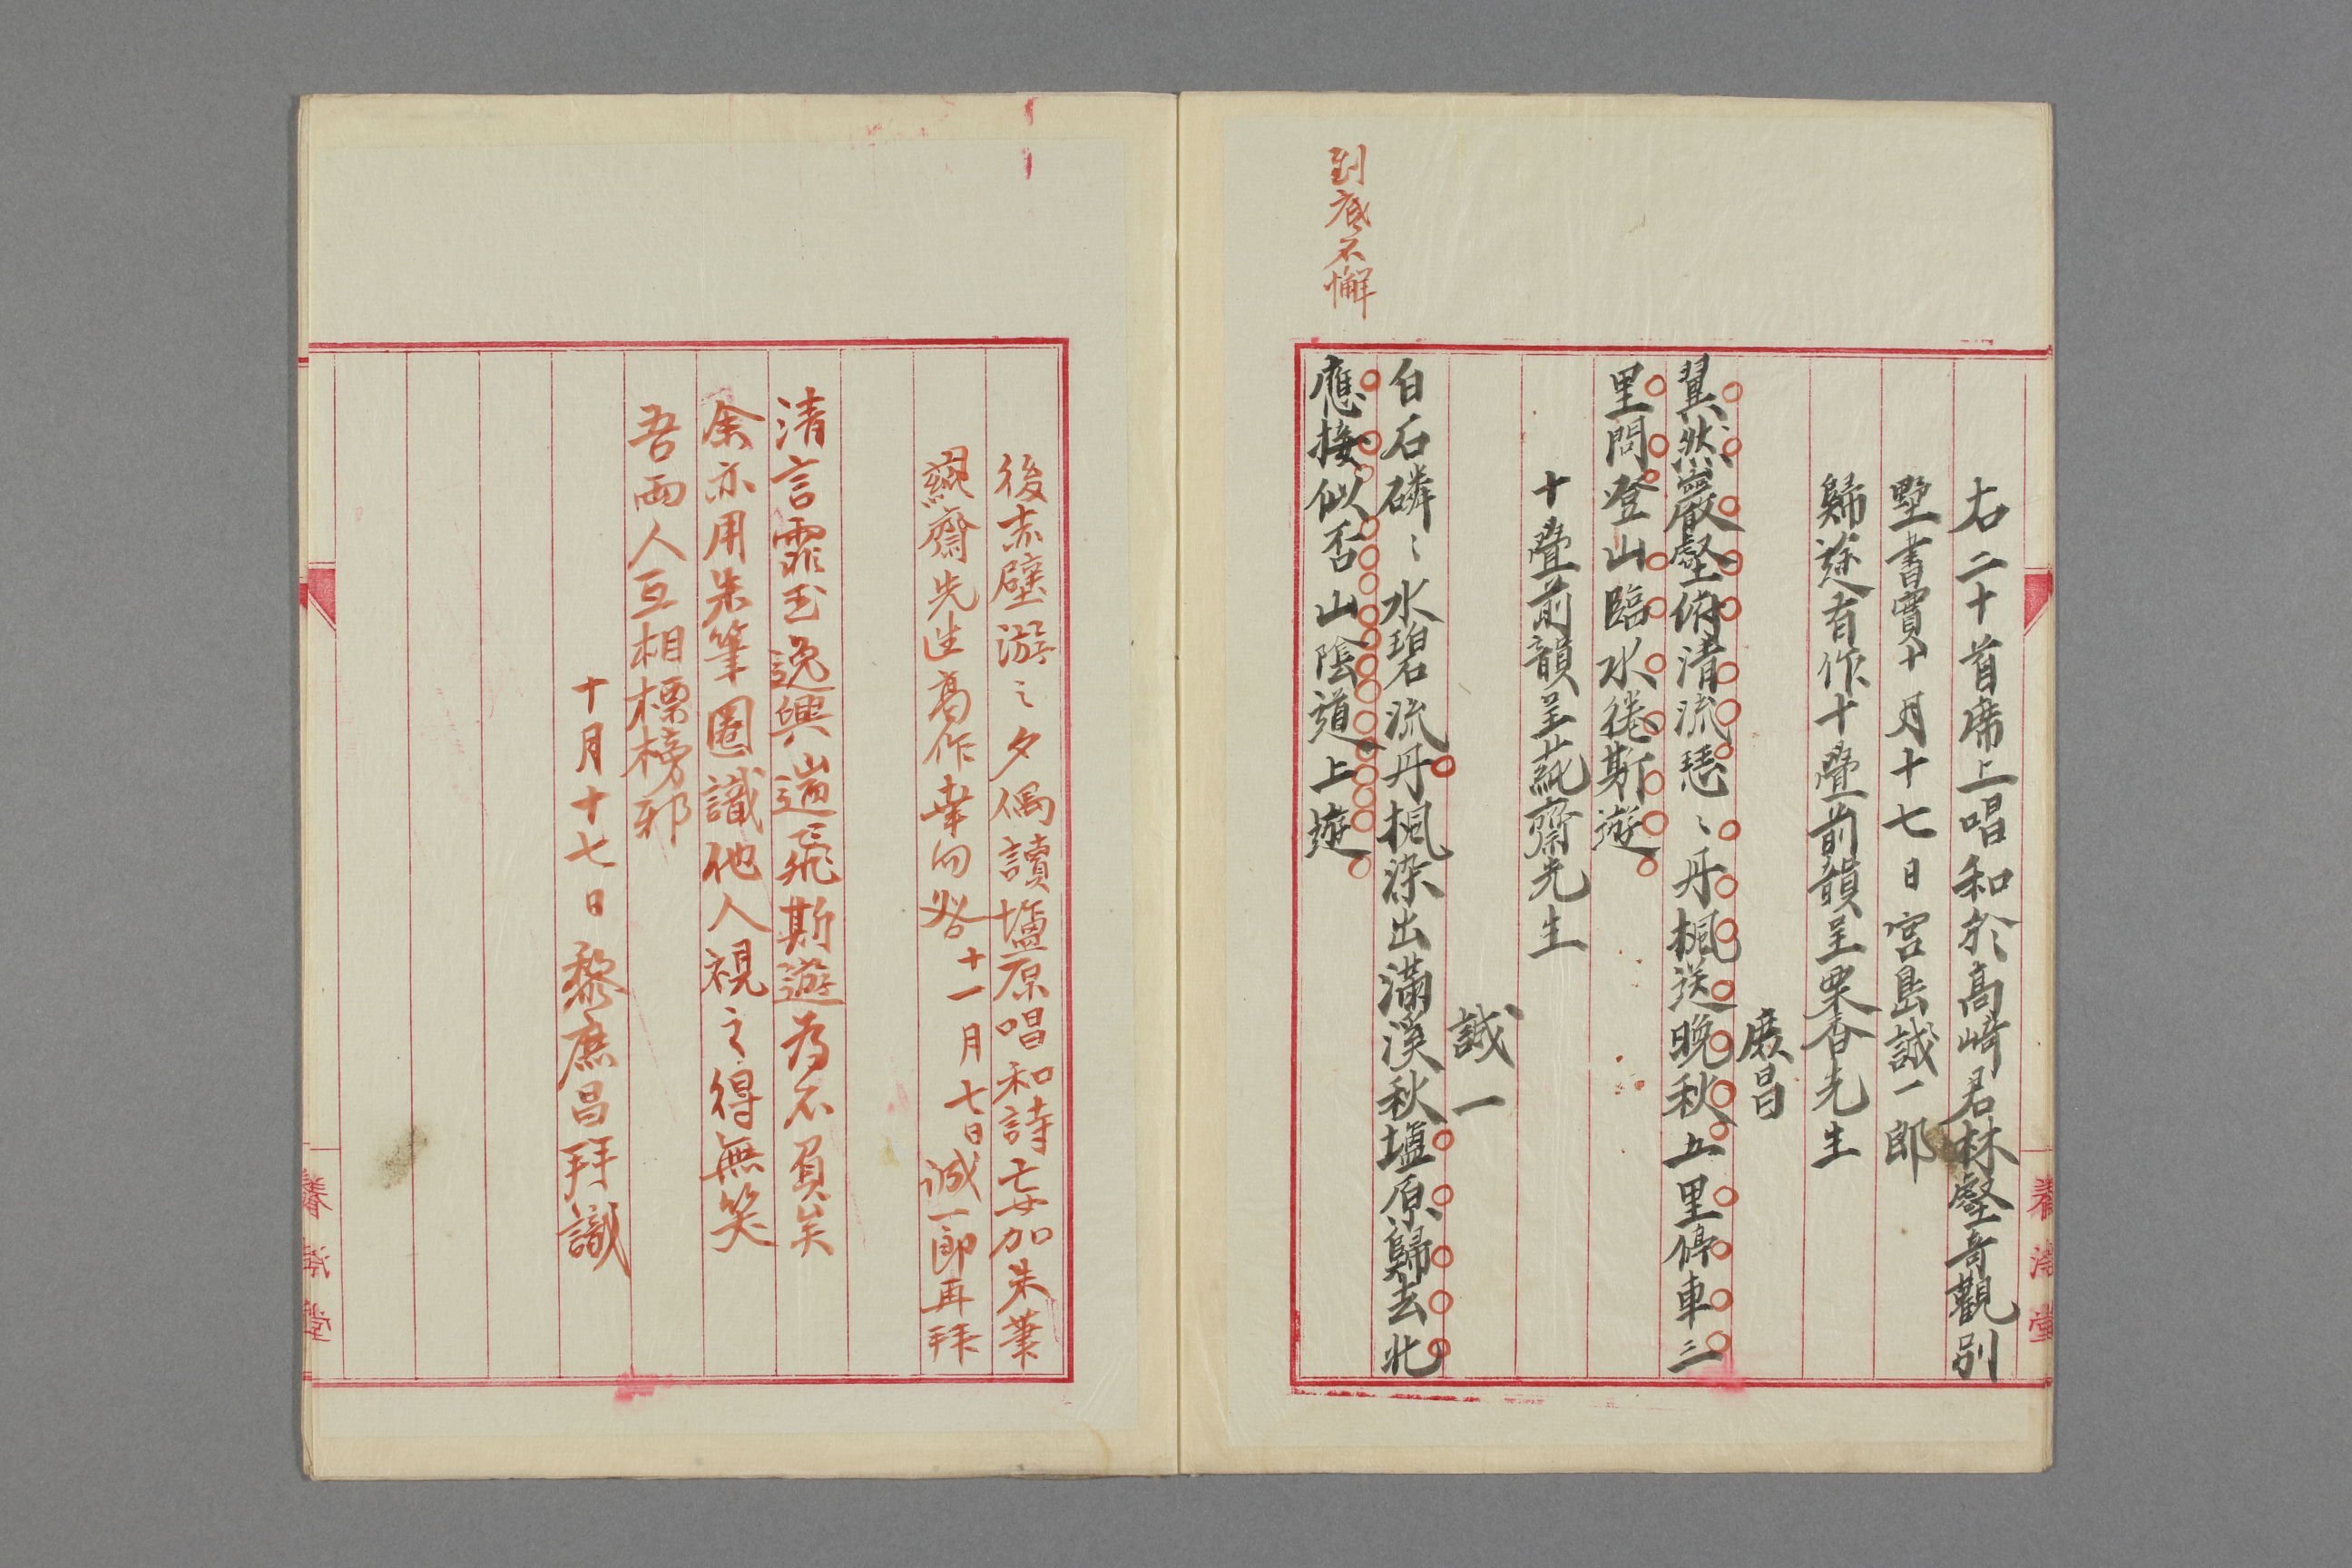 右二十首席上唱和於高崎君林壑奇觀別
墅書實十月十七日宮島誠一郎
歸途有作十疊前韻呈栗香先生
庶昌
翼然巖壑俯清流憇〻丹楓送晚秋五里停車三
里問登山臨水後斯遊
十疊前韻呈蒓齋先生
誠一
白石磷〻水碧流丹楓染出滿溪秋塩原歸去北
應接似否山陰道上遊
到底不懈
後赤壁游之夕偶讀塩原唱和詩妄加朱筆
蒓齋先生高作幸勿咎十一月七日誠一郎再拜
清言霏玉逸興遄飛斯遊為不負矣
余亦用朱筆圈識他人視之得無笑
吾兩人互相標榜邪
十月十七日黎庶昌拜識
養浩堂
養浩堂